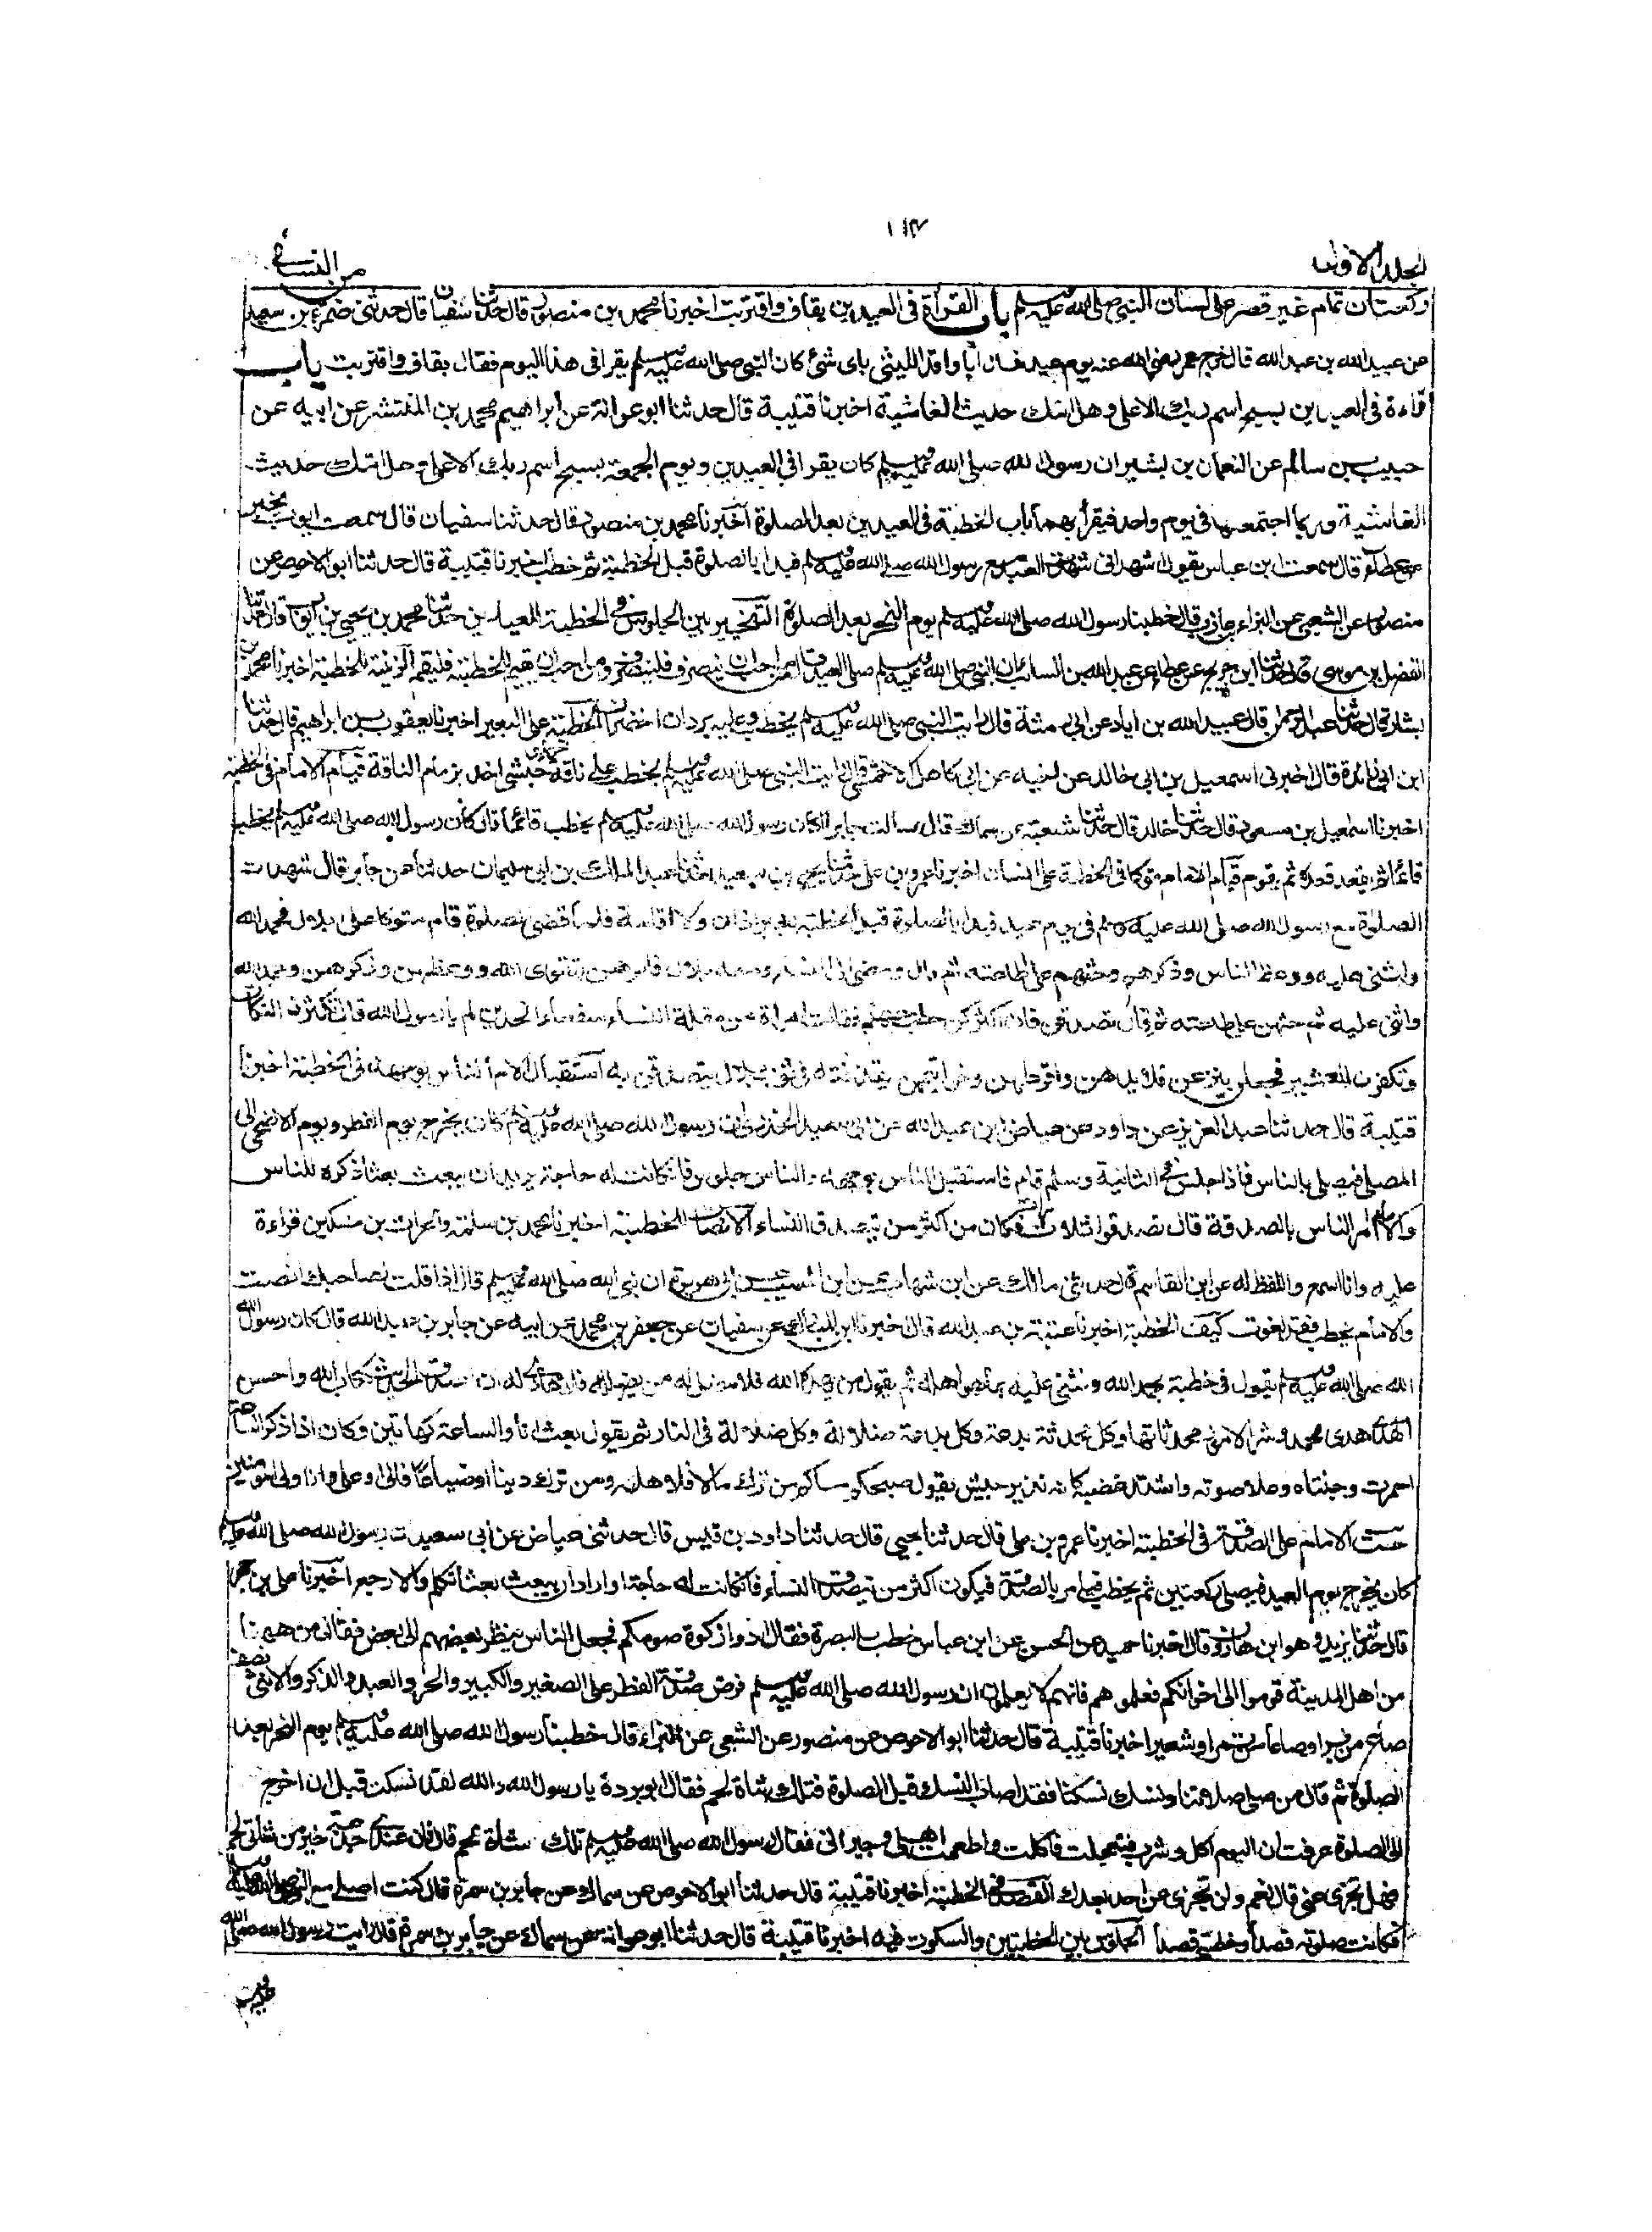 ١١٣
الجلد الاول
من النسائي
ركعتان تمام غير قصر على لسان النبي صلى الله عليه وسلم باب القراءة في العيدين بقاف واقتربت اخبرنا محمد بن منصور قال حدثنا سفيان قال حدثني ضمرة بن سعيد
عن عبيد الله بن عبد الله قال خرج عمر رضي الله عنه يوم عيد فسال ابا واقد الليثي باى شئ كان النبي صلى الله عليه وسلم يقرا في هذا اليوم فقال بقاف واقتربت باب
قراءة في العيدين بسبح اسم ربك الاعلى وهل اتك حديث الغاشية اخبرنا قتيبة قال حدثنا ابو عوانة عن ابراهيم بن محمد بن المنتشر عن ابيه عن
حبيب بن سالم عن النعمان بن بشير ان رسول الله صلى الله عليه وسلم كان يقرا في العيدين ويوم الجمعة بسبح اسم ربك الاعلى وهل اتك حديث
الغاشية وربما اجتمعا في يوم واحد فيقرأ بهما باب الخطبة في العيدين بعد الصلوة اخبرنا محمد بن منصور قال حدثنا سفيان قال سمعت ايوب يخبر
عن عطاء قال سمعت ابن عباس يقول اشهد اني شهدت العيد مع رسول الله صلى الله عليه وسلم فبدأ بالصلوة قبل الخطبة ثم خطب اخبرنا قتيبة قال حدثنا ابو الاحوص عن
منصور عن الشعبي عن البراء بن عازب قال خطبنا رسول الله صلى الله عليه وسلم يوم النحر بعد الصلوة التخيير بين الجلوس في الخطبة للعيدين حدثنا محمد بن يحيى بن ايوب قال حدثنا
الفضل بن موسى قال حدثنا ابن جريج عن عطاء عن عبد الله بن السائب ان النبي صلى الله عليه وسلم صلى العيد قال من احب ان ينصرف فلينصرف ومن احب ان يقيم للخطبة فليقم الزينة للخطبة اخبرنا محمد بن
بشار قال حدثنا عبد الرحمن قال عبيد الله بن اياد عن ابي رمثة قال رايت النبي صلى الله عليه وسلم يخطب وعليه بردان اخضران الخطبة على البعير اخبرنا يعقوب بن ابراهيم قال حدثنا
ابن ابي زائدة قال اخبرني اسمعيل بن ابي خالد عن اخيه عن ابي كاهل الاحمسي قال رايت النبي صلى الله عليه وسلم يخطب على ناقة وحبشي اخذ بزمام الناقة قيام الامام في الخطبة
اخبرنا اسمعيل بن مسعود قال حدثنا خالد قال حدثنا شعبة عن سماك قال سالت جابرا اكان رسول الله صلى الله عليه وسلم يخطب قائما قال كان رسول الله صلى الله عليه وسلم يخطب
قائما ثم يقعد قعدة ثم يقوم قيام الامام متوكا في الخطبة على انسان اخبرنا عمرو بن علي حدثنا يحيى بن سعيد حدثنا عبد الملك بن ابي سليمان حدثنا عن جابر قال شهدت
الصلوة مع رسول الله صلى الله عليه وسلم في يوم عيد فبدا بالصلوة قبل الخطبة بغير اذان ولا اقامة فلما قضى الصلوة قام متوكا على بلال فحمد الله
واثنى عليه ووعظ الناس وذكرهم وحثهم على طاعته ثم مال ومضى الى النساء ومعه بلال فامرهن بتقوى الله ووعظهن وذكرهن وحمد الله
واثنى عليه ثم حثهن على طاعته ثم قال تصدقن فان اكثركن حطب جهنم فقالت امراة من سفلة النساء سفعاء الخدين لم يا رسول الله قال تكثرن الشكاة
وتكفرن العشير فجعلن ينزعن قلايدهن واقرطهن وخواتيمهن يقذفنه في ثوب بلال يتصدقن به استقبال الامام الناس بوجهه في الخطبة اخبرنا
قتيبة قال حدثنا عبد العزيز عن داود عن عياض بن عبد الله عن ابي سعيد الخدري ان رسول الله صلى الله عليه وسلم كان يخرج يوم الفطر ويوم الاضحى الى
المصلى فيصلي بالناس فاذا جلس في الثانية وسلم قام فاستقبل الناس بوجهه والناس جلوس فان كانت له حاجة يريد ان يبعث بعثا ذكره للناس
والا امر الناس بالصدقة قال تصدقوا ثلاث مرات فكان من اكثر من يتصدق النساء الانصات للخطبة اخبرنا محمد بن سلمة والحارث بن مسكين قراءة
عليه وانا اسمع واللفظ له عن ابن القاسم قال حدثني مالك عن ابن شهاب عن ابن المسيب عن ابي هريرة ان نبي الله صلى الله عليه وسلم قال اذا قلت لصاحبك انصت
والامام يخطب فقد لغوت كيف الخطبة اخبرنا عتبة بن عبد الله قال اخبرنا ابن المبارك عن سفيان عن جعفر بن محمد عن ابيه عن جابر بن عبد الله قال كان رسول الله
الله صلى الله عليه وسلم يقول في خطبة يحمد الله ويثني عليه بما هو اهله ثم يقول من يهده الله فلا مضل له ومن يضلله فلا هادي له ان اصدق الحديث كتاب الله واحسن
الهدى هدى محمد وشر الامور محدثاتها وكل محدثة بدعة وكل بدعة ضلالة وكل ضلالة في النار ثم يقول بعثت انا والساعة كهاتين وكان اذا ذكر الساعة
احمرت وجنتاه وعلا صوته واشتد غضبه كانه نذير جيش يقول صبحكم مساكم من ترك مالا فلاهله ومن ترك دينا او ضياعا فالي او علي وانا ولى المومنين
حث الامام على الصدقة في الخطبة اخبرنا عمرو بن علي قال حدثنا يحيى قال حدثنا داود بن قيس قال حدثني عياض عن ابي سعيد ان رسول الله صلى الله عليه وسلم
كان يخرج يوم العيد فيصلي ركعتين ثم يخطب فيامر بالصدقة فيكون اكثر من يتصدق النساء فان كانت له حاجة او اراد ان يبعث بعثا تكلم والا رجع اخبرنا علي بن حجر
قال حدثنا يزيد وهو ابن هارون قال اخبرنا حميد عن الحسن عن ابن عباس خطب بالبصرة فقال ادوا زكوة صومكم فجعل الناس ينظر بعضهم الى بعض فقال من ههنا
من اهل المدينة قوموا الى اخوانكم فعلموهم فانهم لا يعلمون ان رسول الله صلى الله عليه وسلم فرض صدقة الفطر على الصغير والكبير والحر والعبد والذكر والانثى نصف
صاع من بر او صاعا من تمر او شعير اخبرنا قتيبة قال حدثنا ابو الاحوص عن منصور عن الشعبي عن البراء قال خطبنا رسول الله صلى الله عليه وسلم يوم النحر بعد
الصلوة ثم قال من صلى صلاتنا ونسك نسكنا فقد اصاب النسك ومن نسك قبل الصلوة فتلك شاة لحم فقال ابو بردة يا رسول الله والله لقد نسكت قبل ان اخرج
الى الصلوة عرفت ان اليوم اكل وشرب فتعجلت فاكلت واطعمت اهلي وجيراني فقال رسول الله صلى الله عليه وسلم تلك شاة لحم قال فان عندي جذعة خير من شاتي لحم
فهل تجزى عني قال نعم ولن تجزى عن احد بعدك القصد في الخطبة اخبرنا قتيبة قال حدثنا ابو الاحوص عن سماك عن جابر بن سمرة قال كنت اصلي مع النبي صلى الله عليه وسلم
فكانت صلوته قصدا وخطبته قصدا الجلوس بين الخطبتين والسكوت فيه اخبرنا قتيبة قال حدثنا ابو عوانة عن سماك عن جابر بن سمرة قال رايت رسول الله صلى الله
عليه وسلم